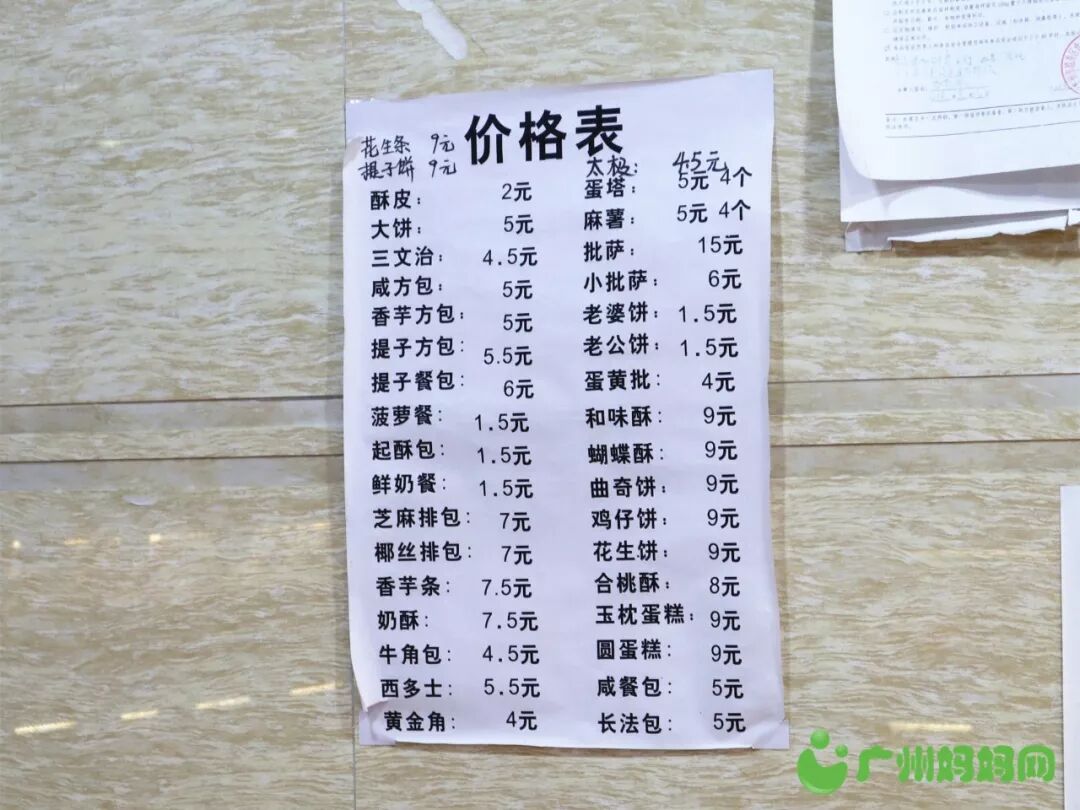 价格表
花生条 9元
提子饼 9元
酥皮： 2元
大饼： 5元
三文治： 4.5元
咸方包： 5元
香芋方包： 5元
提子方包： 5.5元
提子餐包： 6元
菠萝餐： 1.5元
起酥包： 1.5元
鲜奶餐： 1.5元
芝麻排包： 7元
椰丝排包： 7元
香芋条： 7.5元
奶酥： 7.5元
牛角包： 4.5元
西多士： 5.5元
黄金角： 4元
太极： 4.5元
蛋塔： 5元 4个
麻薯： 5元 4个
批萨： 15元
小批萨： 6元
老婆饼： 1.5元
老公饼： 1.5元
蛋黄批： 4元
和味酥： 9元
蝴蝶酥： 9元
曲奇饼： 9元
鸡仔饼： 9元
花生饼： 9元
合桃酥： 8元
玉枕蛋糕： 9元
圆蛋糕： 9元
咸餐包： 5元
长法包： 5元
广州妈妈网